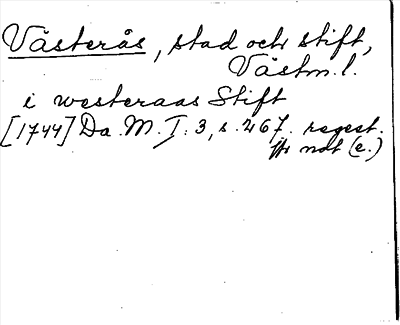 Västerås, stad och stift,
Västm.l.
i westeraas Stift
[1744] Da. M. I. 3, s. 267. regest.
not (e.)